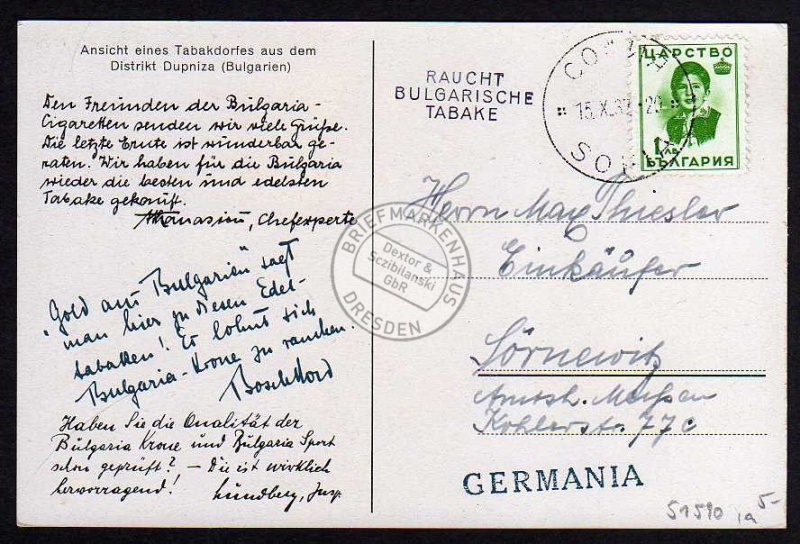 Ansicht eines Tabakdorfes aus dem
Distrikt Dupniza (Bulgarien)
Den Freunden der Bulgaria-
Cigaretten senden wir viele Grüße.
Die letzte Ernte ist wunderbar ge-
raten. Wir haben für die Bulgaria
wieder die besten und edelsten
Tabake gekauft.
Athanasiu, Chefexperte
"Gold aus Bulgarien" sagt
man hier zu diesen Edel-
tabaken! Es lohnt sich
Bulgaria-Krone zu rauchen.
Haben Sie die Qualität der
Bulgaria Krone und Bulgaria Sport
schon geprüft? - Die ist wirklich
hervorragend! Lundberg, Insp.
RAUCHT
BULGARISCHE
TABAKE
СОФИЯ
15.X.37.-20
SOFIA
ЦАРСТВО
1 ЛВ.
БЪЛГАРИЯ
Herrn Max Thiesler
Einkäufer
Sörnewitz
Amtsh. Meißen
Kohlerstr. 77c
GERMANIA
51590 1a 5-
BRIEFMARKENHAUS
Dextor &
Sczibilanski
GbR
DRESDEN